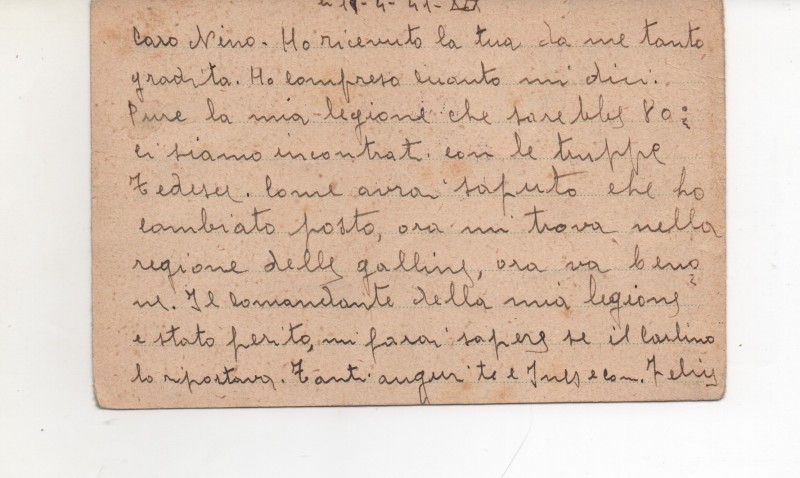 li 18-4-41-XIX
Caro Nino. Ho ricevuto la tua da me tanto
gradita. Ho compreso quanto mi dici.
Pure la mia legione che sarebbe 80ª
ci siamo incontrat. con le truppe
Tedesce. Come avrai saputo che ho
cambiato posto, ora mi trova nella
regione delle galline, ora va beno
ne. Il Comandante della mia legione
e stato ferito, mi farai sapere se il Carlino
lo riportava. Tanti auguri te e Ines e com.